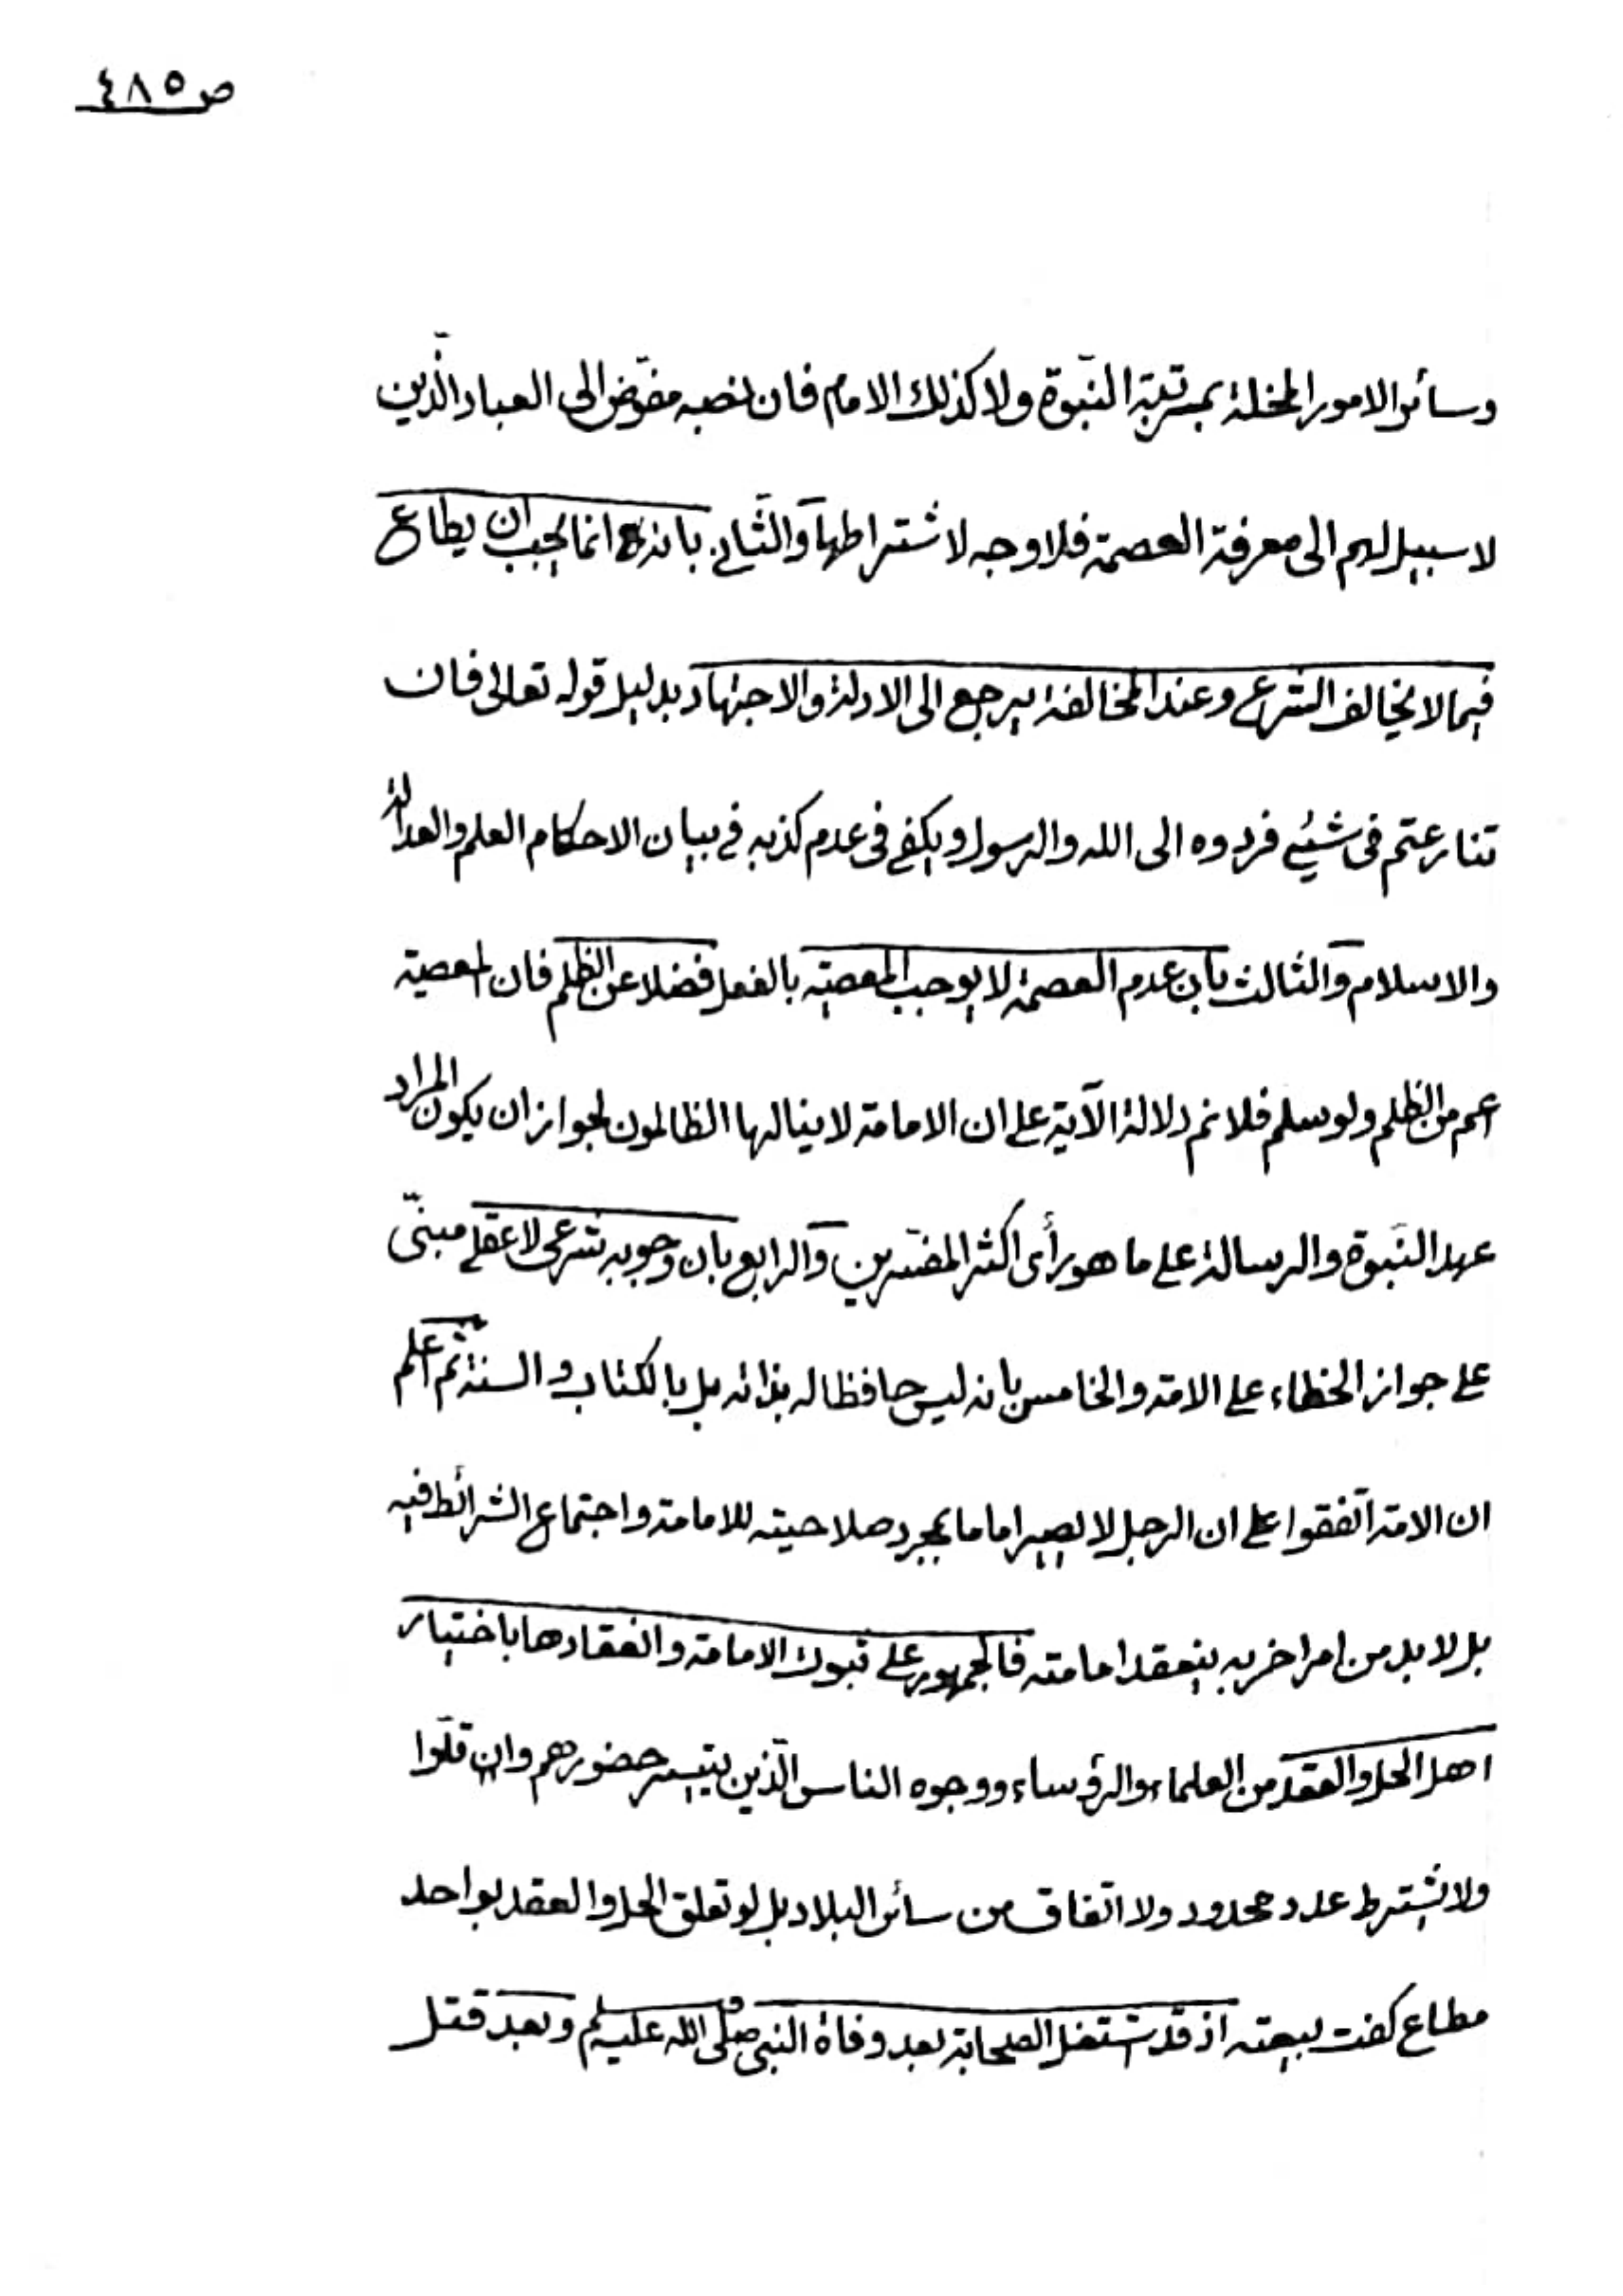 ص ٤٨٥
وسائر الامور المخلة بمرتبة النبّوة ولا كذلك الامام فان نصبه مفوّض الى العباد الّذين
لا سبيل لهم الى معرفة العصمة فلا وجه لاشتراطها والثّانى بانه انما يجب ان يطاع
فيما لا يخالف الشرع وعند المخالفة يرجع الى الادلة والاجتهاد بدليل قوله تعالى فان
تنازعتم فى شئ فردوه الى الله والرسول ويكفى فى عدم كذبه فى بيان الاحكام العلم والعدالة
والاسلام والثالث بان عدم العصمة لا يوجب المعصية بالفعل فضلا عن الظلم فان المعصية
اعم من الظلم ولو سلم فلا نم دلالة الآية على ان الامامة لا ينالها الظالمون لجواز ان يكون المراد
عهد النّبوة والرسالة على ما هو رأى اكثر المفسّرين والرابع بان وجوبه شرعى لا عقلى مبنىّ
على جواز الخطاء على الامة والخامس بانه ليس حافظا له بذاته بل بالكتاب والسنة ثم اعلم
ان الامة اتّفقوا على ان الرجل لا يصير اماما بمجرد صلاحيته للامامة واجتماع الشرائط فيه
بل لا بد من امر اخر به ينعقد امامته فالجمهور على ثبوت الامامة وانعقادها باختيار
اهل الحل والعقد من العلماء والرؤساء ووجوه الناس الّذين يتيسر حضورهم وان قلّوا
ولا يشترط عدد محدود ولا اتّفاق من سائر البلاد بل لو تعلق الحل والعقد بواحد
مطاع كفت بيعته اذ قد اشتغل الصحابة بعد وفاة النبى صلى الله عليه وسلم وبعد قتل